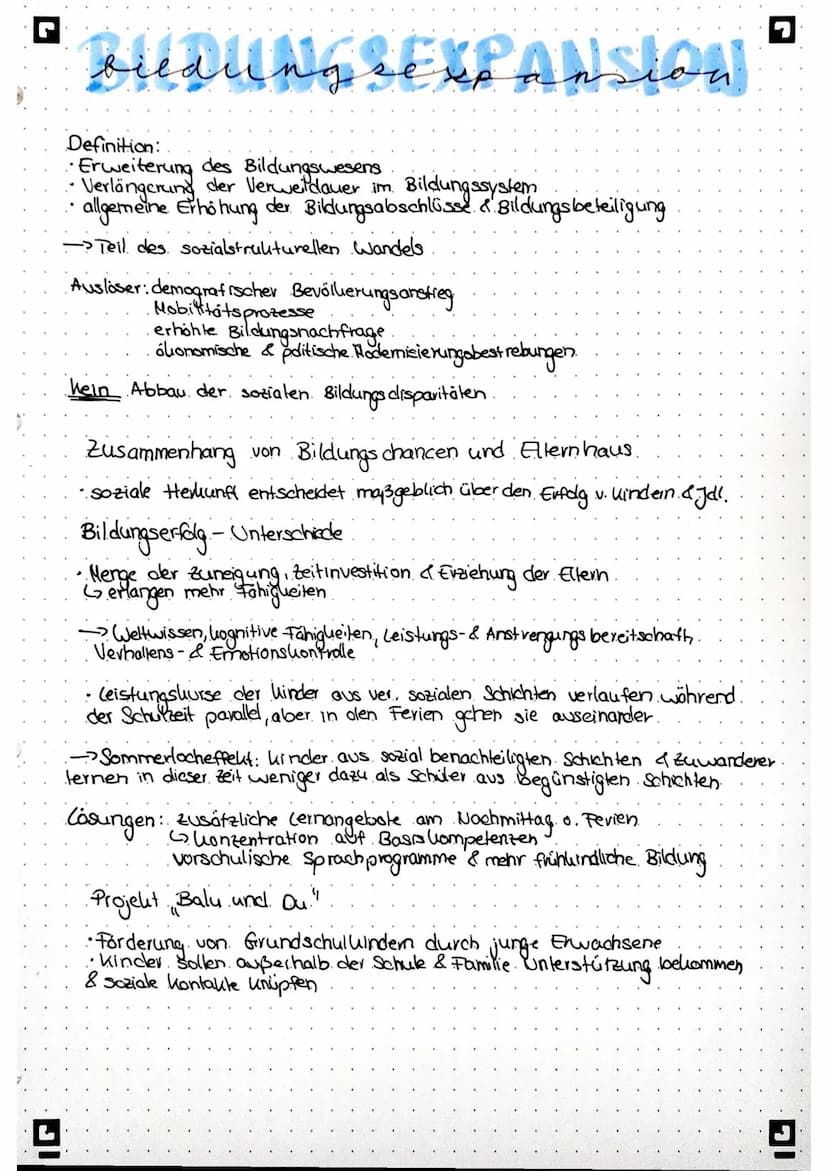 BILDUNGSEXPANSION
bildungsexpansion
Definition:
· Erweiterung des Bildungswesens
· Verlängerung der Verweildauer im Bildungssystem
· allgemeine Erhöhung der Bildungsabschlüsse & Bildungsbeteiligung
→ Teil des sozialstrukturellen Wandels
Auslöser: demografischer Bevölkerungsanstieg
Mobilitätsprozesse
erhöhte Bildungsnachfrage
ökonomische & politische Modernisierungsbestrebungen
kein Abbau der sozialen Bildungsdisparitäten
Zusammenhang von Bildungschancen und Elternhaus
· soziale Herkunft entscheidet maßgeblich über den Erfolg v. Kindern & Jdl.
Bildungserfolg - Unterschiede
· Menge der Zuneigung, Zeitinvestition & Erziehung der Eltern
↳ erlangen mehr Fähigkeiten
→ Weltwissen, kognitive Fähigkeiten, Leistungs- & Anstrengungsbereitschaft,
Verhaltens- & Emotionskontrolle
· Leistungskurse der Kinder aus ver. sozialen Schichten verlaufen während
der Schulzeit parallel, aber in den Ferien gehen sie auseinander
→ Sommerlocheffekt: Kinder aus sozial benachteiligten Schichten & Zuwanderer
lernen in dieser Zeit weniger dazu als Schüler aus begünstigten Schichten
Lösungen: zusätzliche Lernangebote am Nachmittag o. Ferien
↳ Konzentration auf Basiskompetenzen
vorschulische Sprachprogramme & mehr frühkindliche Bildung
Projekt „Balu und Du"
· Förderung von Grundschulkindern durch junge Erwachsene
· Kinder sollen außerhalb der Schule & Familie Unterstützung bekommen
& soziale Kontakte knüpfen